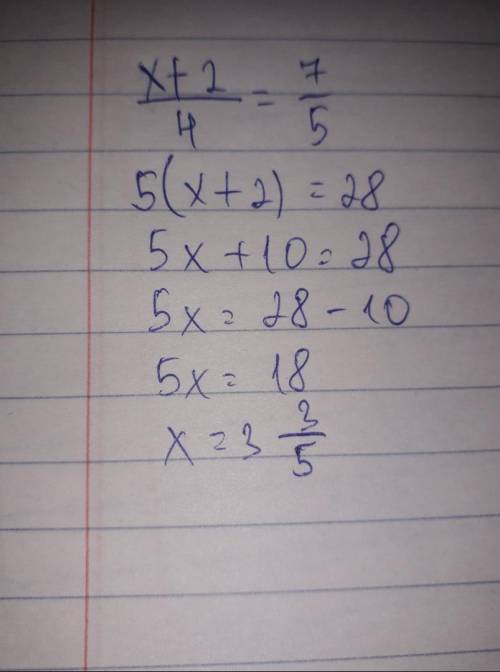 x+2/4 = 7/5
5(x+2) = 28
5x+10=28
5x= 28-10
5x= 18
x=3 3/5